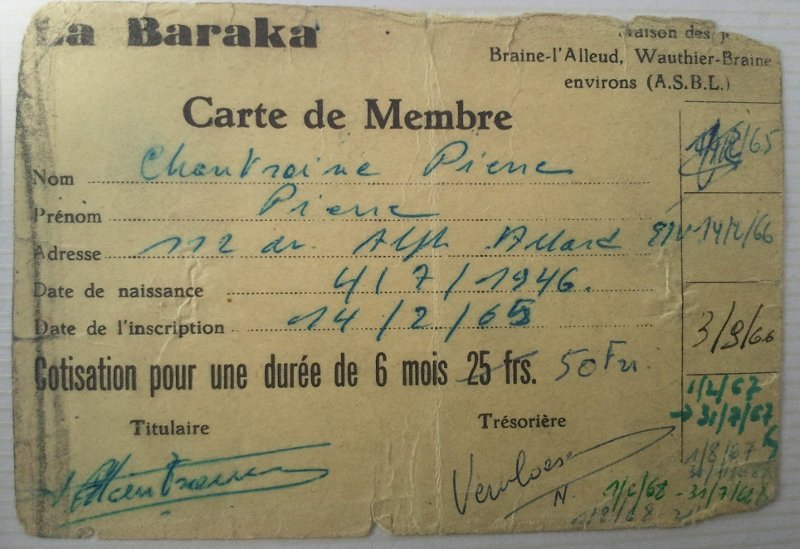 La Baraka
Maison des
Braine-l'Alleud, Wauthier-Braine
environs (A.S.B.L.)
Carte de Membre
Nom Chantraine Pierre
Prénom Pierre
Adresse 112 av. Alph Allard
14/2/66
Date de naissance 4/7/1946.
Date de l'inscription 14/2/65
3/9/66
Cotisation pour une durée de 6 mois 25 frs. 50 Frs.
1/2/67
→ 31/7/67
1/8/67
Titulaire
Trésorière
Chantraine
Vervloesem
N.
31/7/68
1/8/68